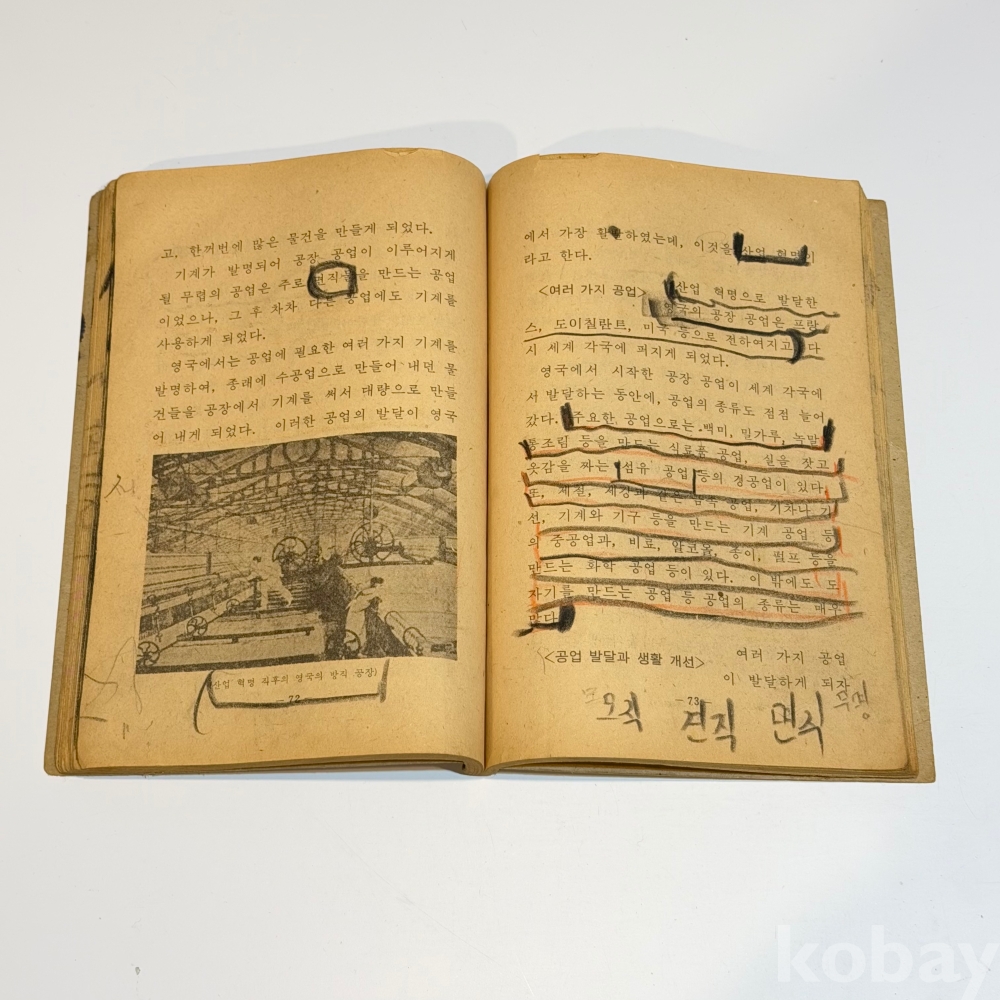 고, 한꺼번에 많은 물건을 만들게 되었다.
기계가 발명되어 공장 공업이 이루어지게
될 무렵의 공업은 주로 면직물을 만드는 공업
이었으나, 그 후 차차 다른 공업에도 기계를
사용하게 되었다.
영국에서는 공업에 필요한 여러 가지 기계를
발명하여, 종래에 수공업으로 만들어 내던 물
건들을 공장에서 기계를 써서 대량으로 만들
어 내게 되었다. 이러한 공업의 발달이 영국
(산업 혁명 직후의 영국의 방직 공장)
— 72 —
에서 가장 활발하였는데, 이것을 산업 혁명이
라고 한다.
<여러 가지 공업> 산업 혁명으로 발달한
영국의 공장 공업은 프랑
스, 도이칠란트, 미국 등으로 전하여지고, 다
시 세계 각국에 퍼지게 되었다.
영국에서 시작한 공장 공업이 세계 각국에
서 발달하는 동안에, 공업의 종류도 점점 늘어
갔다. 주요한 공업으로는 백미, 밀가루, 녹말,
통조림 등을 만드는 식료품 공업, 실을 잣고
옷감을 짜는 섬유 공업 등의 경공업이 있다.
또, 제철, 제강과 같은 금속 공업, 기차나 기
선, 기계와 기구 등을 만드는 기계 공업 등
의 중공업과, 비료, 알코올, 종이, 펄프 등을
만드는 화학 공업 등이 있다. 이 밖에도 도
자기를 만드는 공업 등 공업의 종류는 매우
많다.
<공업 발달과 생활 개선> 여러 가지 공업
이 발달하게 되자
— 73 —
모직 견직 면직
kobay